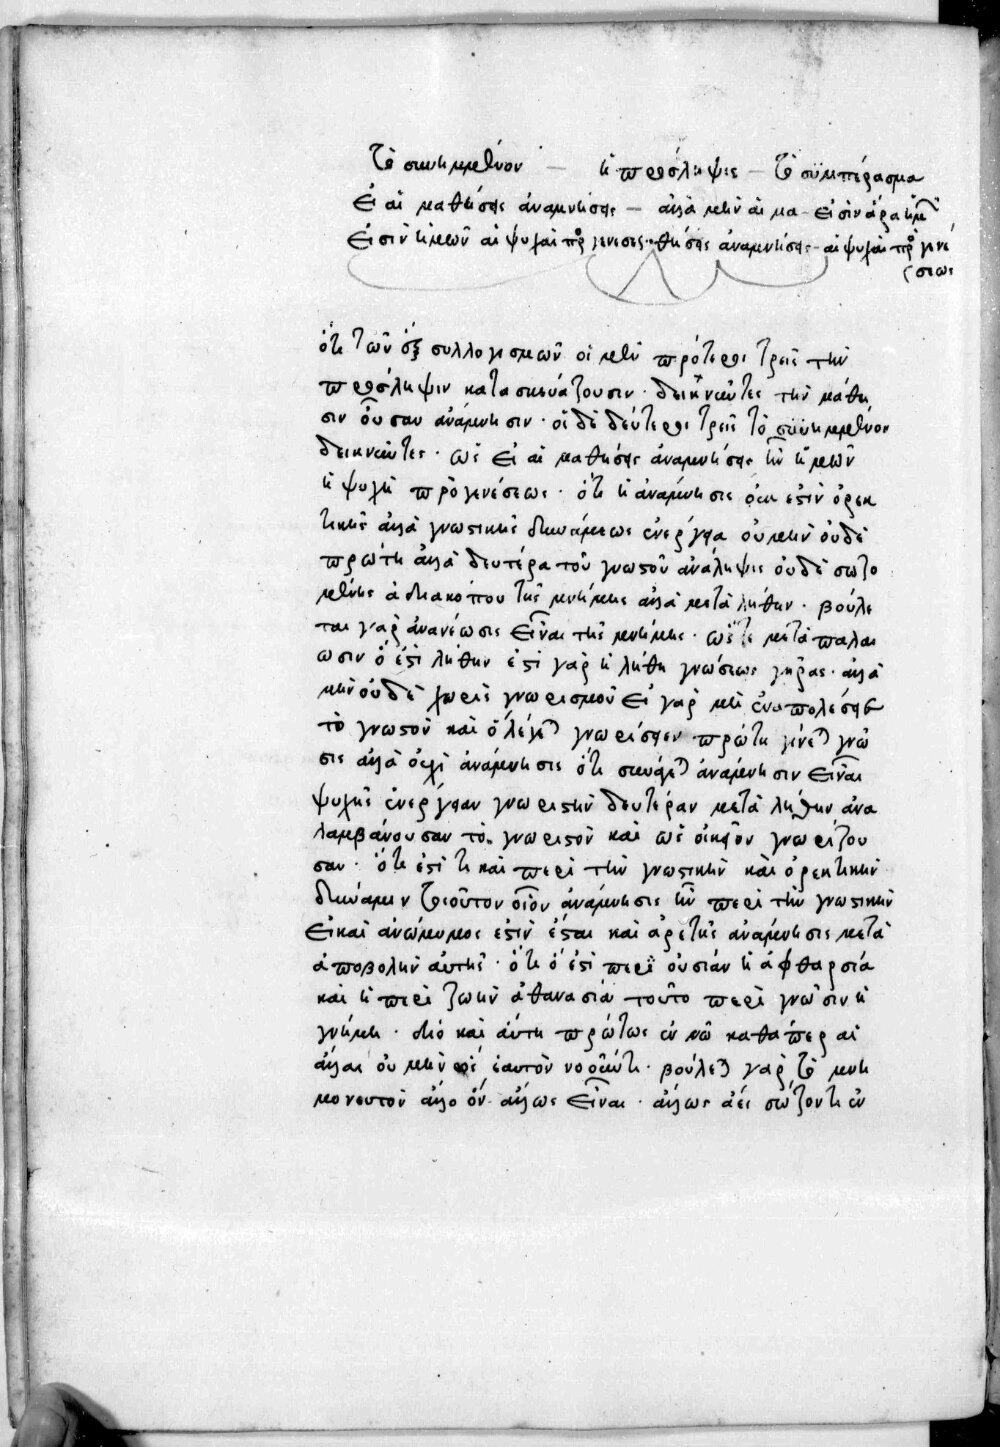 τὸ συνημμένον — ἡ πρόσληψις — τὸ συμπέρασμα
Εἰ αἱ μαθήσεις ἀναμνήσεις — ἀλλὰ μὴν αἱ μα- εἰσὶν ἄρα ἡμῶν
Εἰσὶν ἡμῶν αἱ ψυχαὶ πρὸ γενέσεως θήσεις ἀναμνήσεις - αἱ ψυχαὶ πρὸ γενέ
σεως
ὅτι τῶν ἓξ συλλογισμῶν οἱ μὲν πρότεροι τρεῖς τὴν
πρόσληψιν κατασκευάζουσιν · δεικνῦντες τὴν μάθη
σιν οὖσαν ἀνάμνησιν · οἱ δὲ δεύτεροι τρεῖς τὸ συνημμένον
δεικνῦντες · ὡς εἰ αἱ μαθήσεις ἀναμνήσεις ἦν ἡμῶν
ἡ ψυχὴ πρὸ γενέσεως · ὅτι ἡ ἀνάμνησις οὐκ ἐστὶν ὀρεκ
τικῆς ἀλλὰ γνωστικῆς δυνάμεως ἐνέργεια οὐ μὴν οὐδὲ
πρώτη ἀλλὰ δευτέρα τοῦ γνωστοῦ ἀνάληψις οὐδὲ σωζο
μένης ἀδιακόπου τῆς μνήμης ἀλλὰ μετὰ λήθην · βούλε
ται γὰρ ἀνανέωσις εἶναι τῆς μνήμης · ὥστε μετὰ παλαί
ωσιν ὅ ἐστι λήθην ἐστὶ γὰρ ἡ λήθη γνώσεως γῆρας · ἀλλὰ
μὴν οὐδὲ χωρὶς γνωρισμοῦ εἰ γὰρ μὴ ἐναπολέσῃ
τὸ γνωστὸν καὶ ὃ λέγεται γνωρίσειεν πρώτη γίνεται γνῶ
σις ἀλλὰ οὐχὶ ἀνάμνησις ὅτι συνάγεται ἀνάμνησιν εἶναι
ψυχῆς ἐνέργειαν γνωριστὴν δευτέραν μετὰ λήθην ἀνα
λαμβάνουσαν τὸ γνωριστὸν καὶ ὡς οἰκεῖον γνωρίζου
σαν · ὅτι ἐστί τι καὶ περὶ τὴν γνωστικὴν καὶ ὀρεκτικὴν
δύναμιν τοιοῦτον οἷον ἀνάμνησις ἦν περὶ τὴν γνωστικὴν
Εἰ καὶ ἀνώνυμος ἐστὶν ἔσται καὶ ἀρετῆς ἀνάμνησις μετὰ
ἀποβολὴν αὐτῆς · ὅτι ὅ ἐστι περὶ οὐσίαν ἡ ἀφθαρσία
καὶ ἡ περὶ ζωὴν ἀθανασία τοῦτο περὶ γνῶσιν ἡ
μνήμη · διὸ καὶ αὕτη πρώτως ἐν νῷ καθάπερ αἱ
ἄλλαι οὐ μὴν ἑαυτὸν νοοῦντι · βούλεται γὰρ τὸ μνη
μονευτὸν ἄλλο ὂν ἄλλως εἶναι · ἄλλως ἀεὶ σώζοντι ἐν